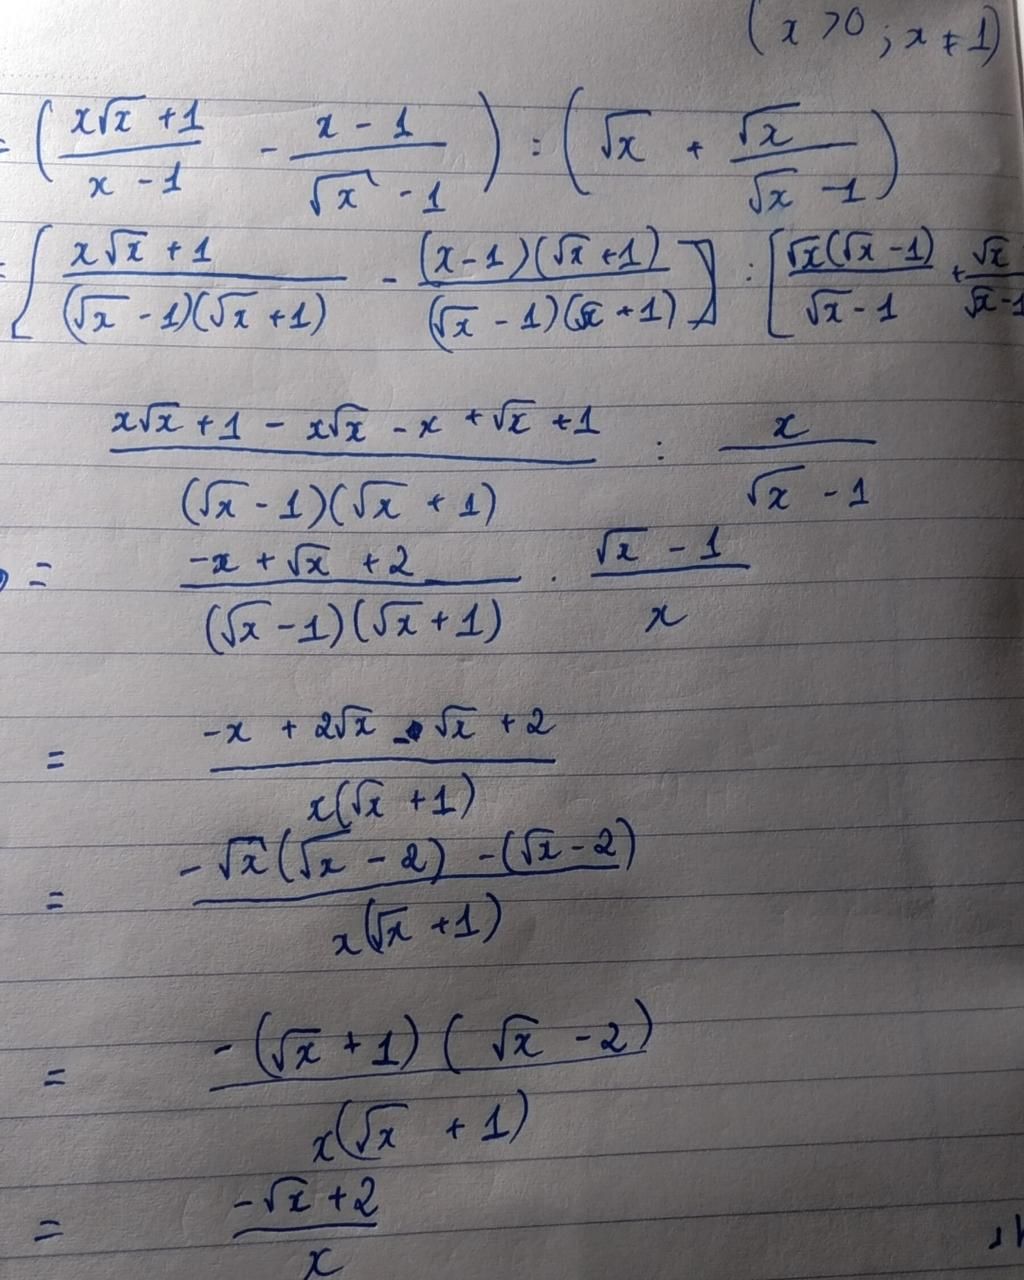 (x >0 ; x ≠ 1)
= ( (x√x + 1)/(x - 1) - (x - 1)/(√x - 1) ) : ( √x + √x/(√x - 1) )
= [ (x√x + 1)/((√x - 1)(√x + 1)) - ((x-1)(√x + 1))/((√x - 1)(√x + 1)) ] : [ (√x(√x - 1))/(√x - 1) + √x/(√x - 1)
(x√x + 1 - x√x - x + √x + 1)/((√x - 1)(√x + 1)) : x/(√x - 1)
= (-x + √x + 2)/((√x - 1)(√x + 1)) . (√x - 1)/x
= (-x + 2√x - √x + 2)/(x(√x + 1))
= (-√x(√x - 2) - (√x - 2))/(x(√x + 1))
= (-(√x + 1)(√x - 2))/(x(√x + 1))
= (-√x + 2)/x